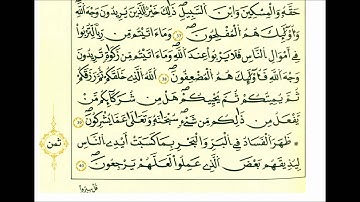 حَقَّهُۥ وَالْمِسْكِينَ وَابْنَ السَّبِيلِ ذَٰلِكَ خَيْرٌ لِّلَّذِينَ يُرِيدُونَ وَجْهَ اللَّهِ
وَأُوْلَٰٓئِكَ هُمُ الْمُفْلِحُونَ وَمَآ ءَاتَيْتُم مِّن رِّباً لِّتُرْبُواْ
فِےٓ أَمْوَٰلِ النَّاسِ فَلَا يَرْبُواْ عِندَ اللَّهِ وَمَآ ءَاتَيْتُم مِّن زَكَوٰةٍ تُرِيدُونَ
وَجْهَ اللَّهِ فَأُوْلَٰٓئِكَ هُمُ الْمُضْعِفُونَ اللَّهُ الَّذِے خَلَقَكُمْ ثُمَّ رَزَقَكُمْ
ثُمَّ يُمِيتُكُمْ ثُمَّ يُحْيِيكُمْ هَلْ مِن شُرَكَآئِكُم مَّنْ
يَّفْعَلُ مِن ذَٰلِكُم مِّن شَےْءٍ سُبْحَٰنَهُۥ وَتَعَٰلَىٰ عَمَّا يُشْرِكُونَ
ظَهَرَ الْفَسَادُ فِے الْبَرِّ وَالْبَحْرِ بِمَا كَسَبَتَ اَيْدِے النَّاسِ
لِيُذِيقَهُم بَعْضَ الَّذِے عَمِلُواْ لَعَلَّهُمْ يَرْجِعُونَ
ثمن
قل سيروا